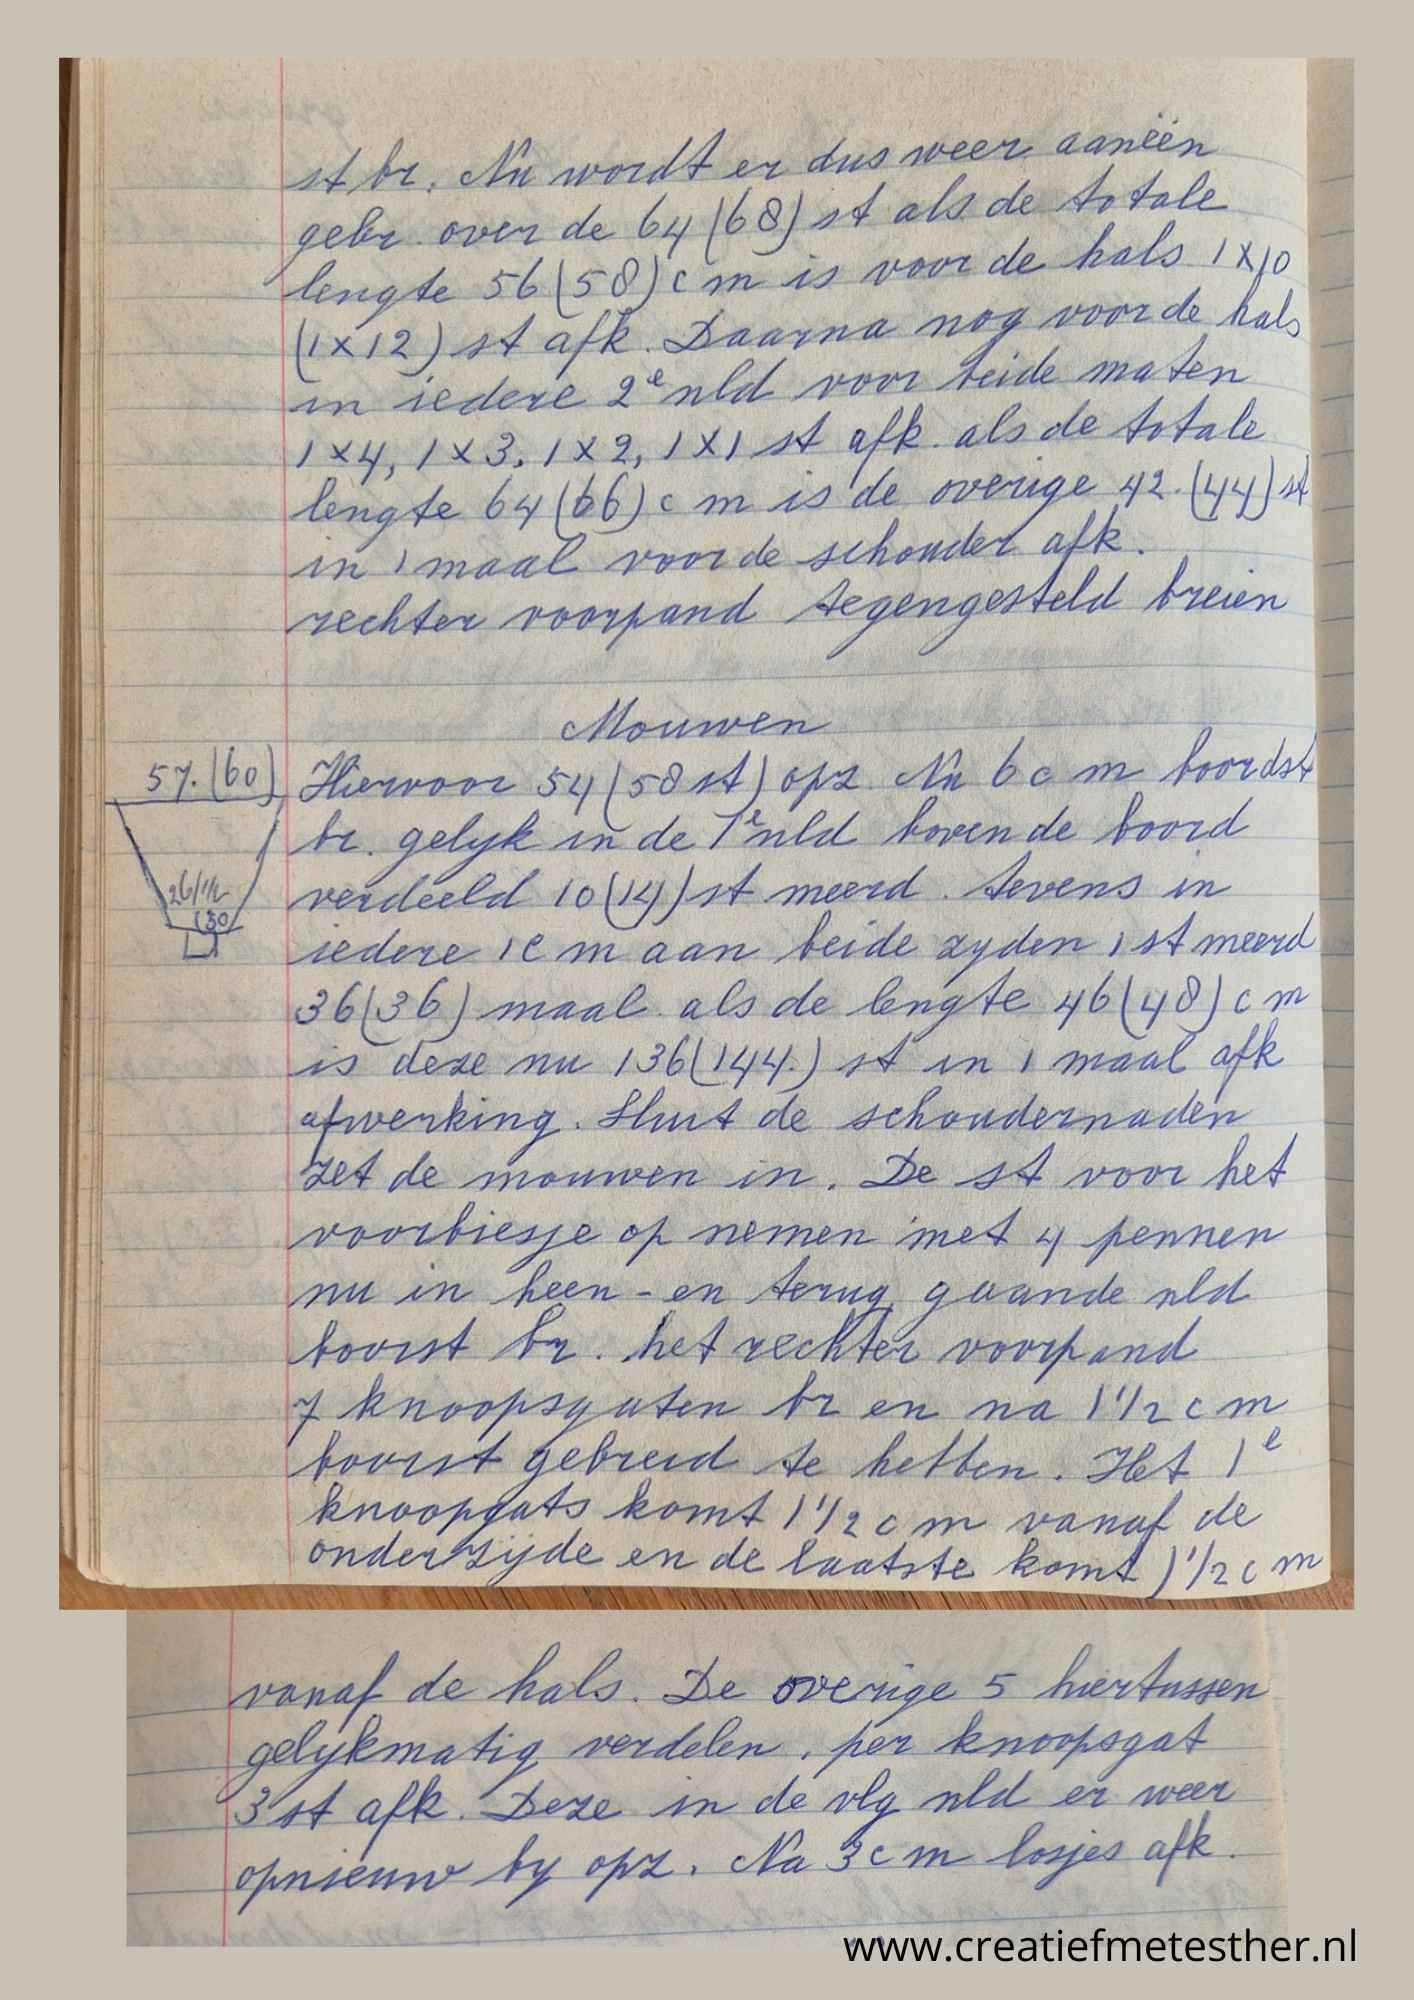 st br. Nu wordt er dus weer aanéén
gebr. over de 64 (68) st als de totale
lengte 56 (58) cm is voor de hals 1x10
(1x12) st afk. Daarna nog voor de hals
in iedere 2e nld voor beide maten
1x4, 1x3, 1x2, 1x1 st afk. als de totale
lengte 64 (66) cm is de overige 42. (44) st
in 1 maal voor de schouder afk.
rechter voorpand tegengesteld breien
Mouwen
57. (60)
26/1/2
(30
Hiervoor 54 (58 st) opz. Nu 6 cm boordst
br. gelyk in de 1e nld boven de boord
verdeeld 10 (14) st meerd. tevens in
iedere 1 cm aan beide zyden 1 st meerd
36 (36) maal. als de lengte 46 (48) cm
is deze nu 136 (144.) st in 1 maal afk
afwerking. Sluit de schoudernaden
zet de mouwen in. De st voor het
voorbiesje op nemen met 4 pennen
nu in heen - en terug gaande nld
boorst br. het rechter voorpand
7 knoopsgaten br en na 1 1/2 cm
boorst gebreid te hebben. Het 1e
knoopgats komt 1 1/2 cm vanaf de
onderzijde en de laatste komt 1 1/2 cm
vanaf de hals. De overige 5 hiertussen
gelykmatig verdelen, per knoopsgat
3 st afk. Deze in de vlg nld er weer
opnieuw by opz. Na 3 cm losjes afk.
www.creatiefmetesther.nl